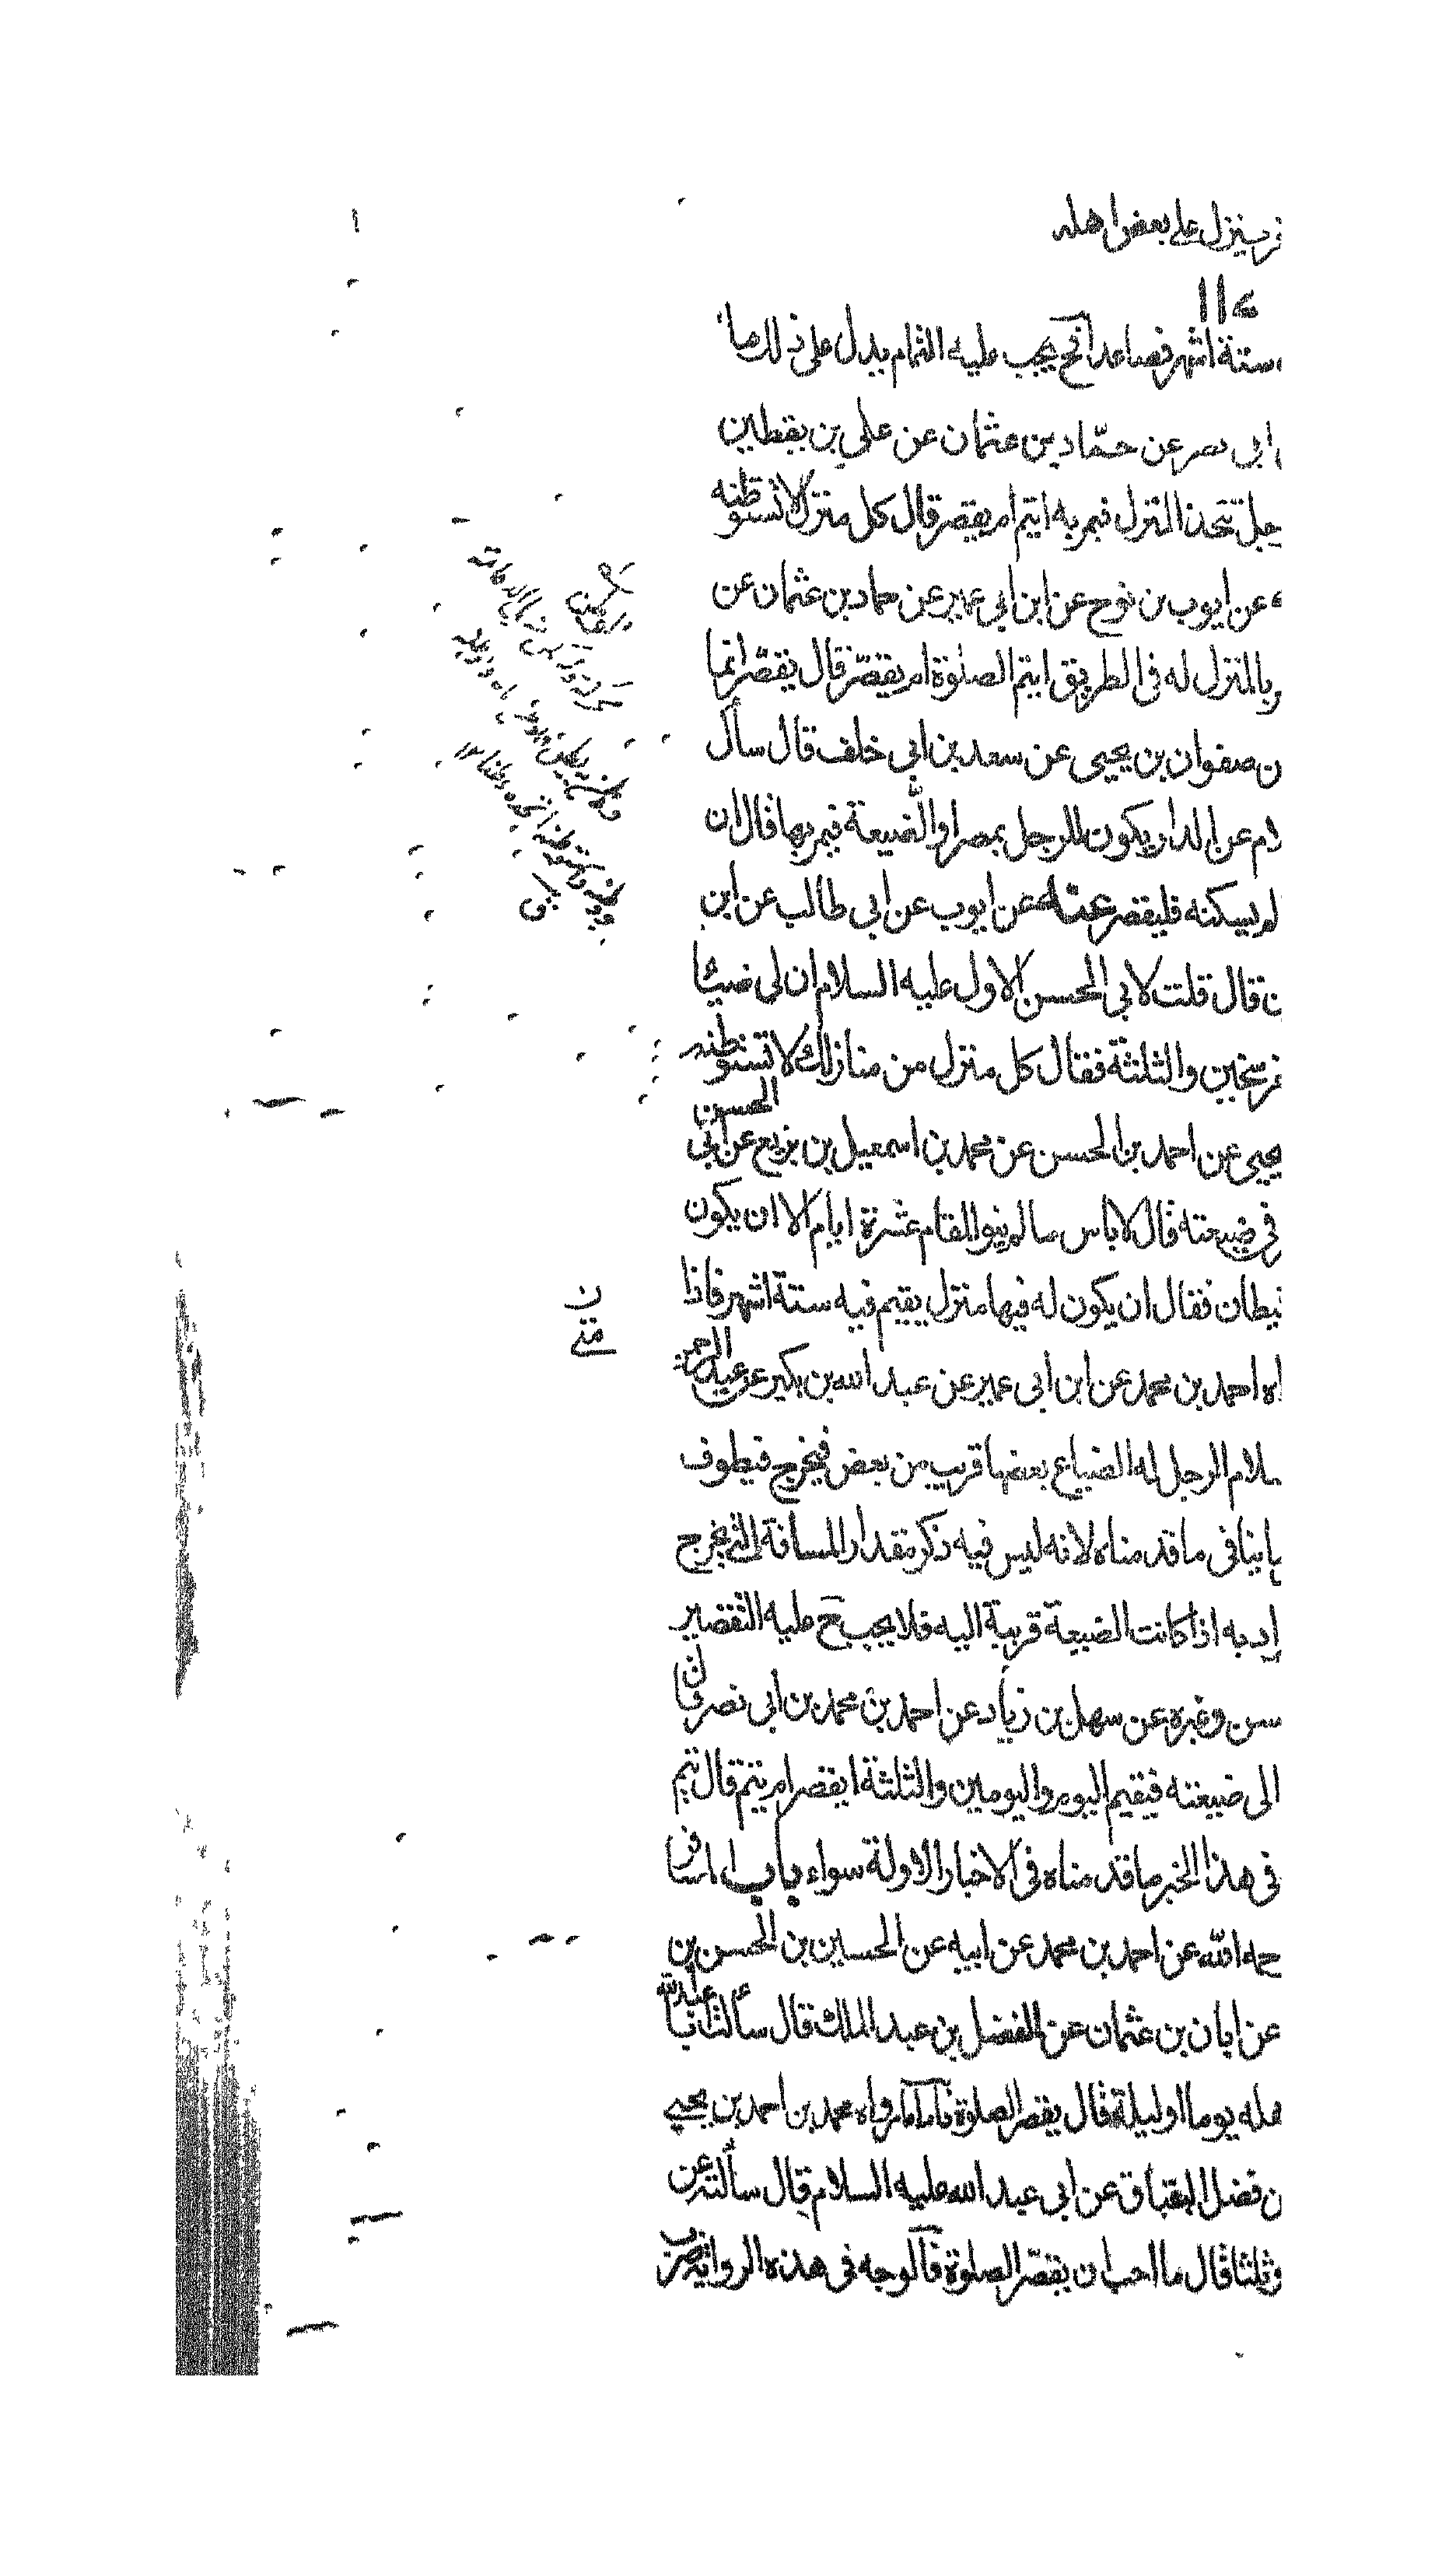 فر ينزل على بعض اهله
١١٤
ستة اشهر فصاعدا فح يجب عليه التمام يدل على ذلك ما
ابى نصر عن حمّاد بن عثمان عن على بن يقطين
جل تتخذ المنزل فيمر به ايتم ام يقصر قال كل منزل لا تستوطنه
عن ايوب بن نوح عن ابن ابى عمير عن حماد بن عثمان عن
بالمنزل له فى الطريق ايتم الصلوة ام يقصّر قال يقصّر انما
ن صفوان بن يحيى عن سعد بن ابى خلف قال سأل
عن الدار يكون للرجل بمصر او الضيعة فيمر بها قال ان
لم يسكنه فليقصر عنه عن ايوب عن ابى طالب عن ابن
ن قال قلت لابى الحسن الاول عليه السلام ان لى ضياعا
فرسخين والثلثة فقال كل منزل من منازلك لا تستوطنه
يحيى عن احمد بن الحسن عن محمد بن اسمعيل بن بزيع عن ابى الحسن
فى ضيعته قال لا باس ما لم ينو المقام عشرة ايام الا ان يكون
يطان فقال ان يكون له فيها منزل يقيم فيه ستة اشهر فاذا
اه احمد بن محمد عن ابن ابى عمير عن عبد الله بن بكير عن عبد الرحمن
سلام الرجل له الضياع بعضها قريب من بعض فيخرج فيطوف
ينافى ما قدمناه لانه ليس فيه ذكر مقدار المسافة التى يخرج
اراد به اذا كانت الضيعة قريبة اليه فلا يجب ح عليه التقصير
سن وغيره عن سهل بن زياد عن احمد بن محمد بن ابى نصر قال
الى ضيعته فيقيم اليوم واليومين والثلثة ايقصر ام يتم قال يتم
فى هذا الخبر ما قدمناه فى الاخبار الاولة سواء باب المسافر
حمه الله عن احمد بن محمد عن ابيه عن الحسين بن الحسن بن
عن ابان بن عثمان عن الفضل بن عبد الملك قال سألت ابا عبد الله
هله يوما او ليلة قال يقصر الصلوة فاما ما رواه محمد بن احمد بن يحيى
ن فضل البقباق عن ابى عبد الله عليه السلام قال سألته عن
وثلثا قال ما احب ان يقصّر الصلوة فالوجه فى هذه الرواية ضرب